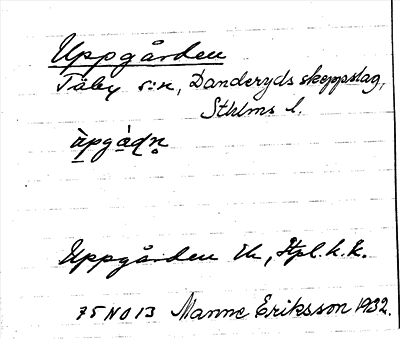 Uppgården
Täby s:n, Danderyds skeppslag,
Sthlms l.
ùpgàḍṇ
Uppgården Ek, Hpl. k. k.
75 NO 13 Manne Eriksson 1932.